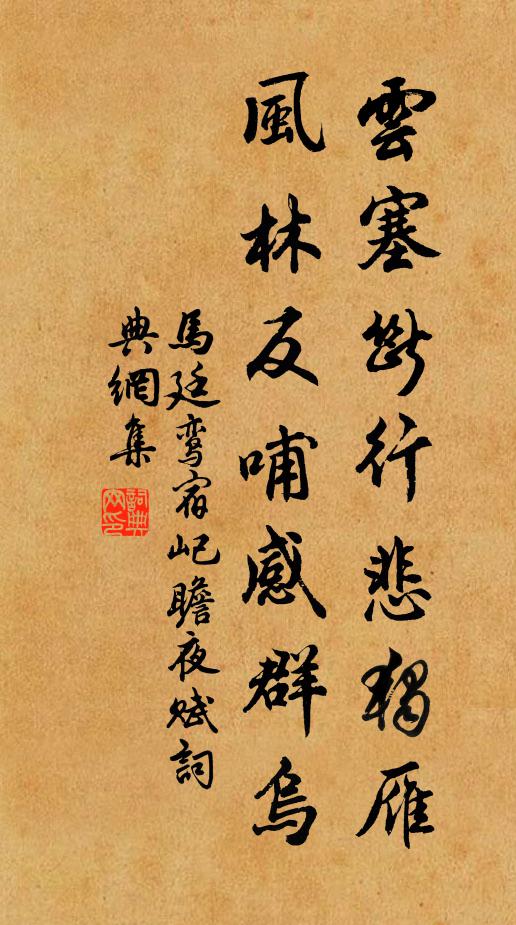 雲塞斷行悲獨雁
風林反哺感群烏
馬廷鸞宿屺瞻夜賦詞
典網集
詞典网印